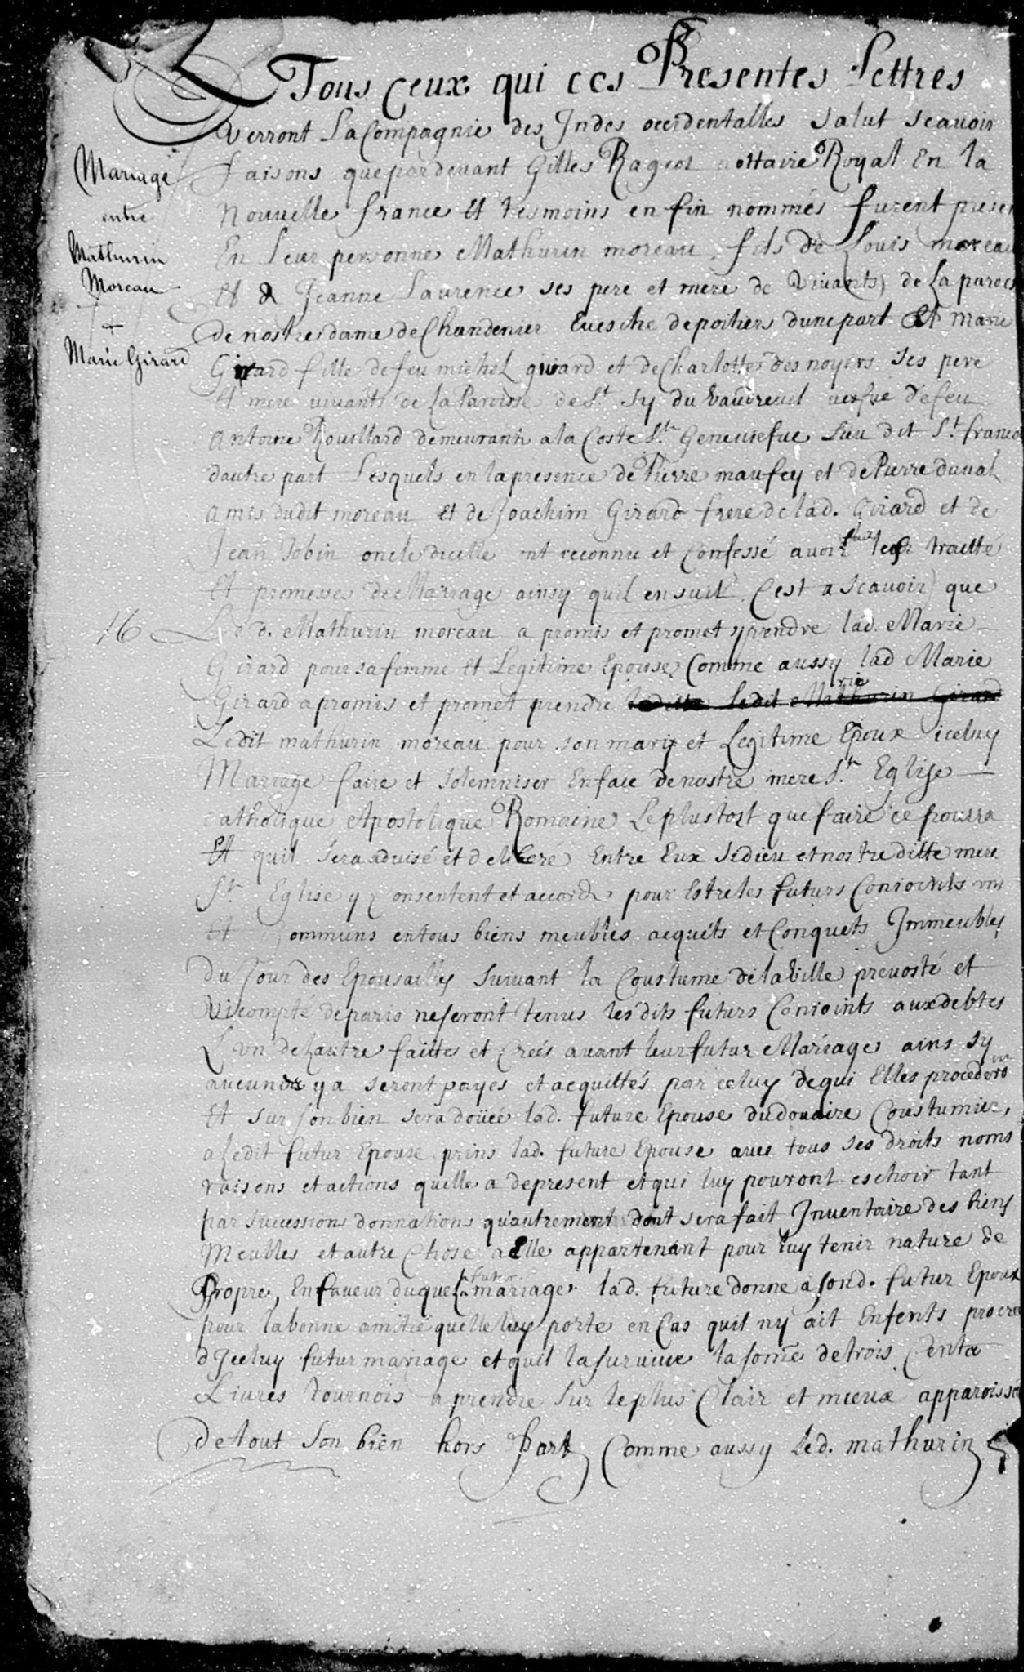 A Tous ceux qui ces Presentes Lettres
verront La Compagnie des Indes occidentalles salut scavoir
Mariage
entre
Mathurin
Moreau
+
Marie Girard
faisons que pardevant Gilles Rageot nottaire Royal En la
Nouvelle france Et tesmoins en fin nommés furent presen
En Leur personnes Mathurin moreau fils de Louis moreau
Et de Jeanne Laurence ses pere et mere de Vivants de La paroes
de nostre dame de Chandenier Evesche de poitiers dune part Et marie
Girard fille de feu michel girard et de Charlotte des noyers ses pere
Et mere vivants de La Paroisse de St Sy du Vaudreuil vefue de feu
Antoine Rouillard demeurant a la Coste Ste Geneuiefue Lieu dit St francoi
dautre part Lesquels en la presence de Pierre maufey et de Pierre duval
amis dudit moreau et de Joachim Girard frere de lad. Girard et de
Jean Jobin oncle dicelle ont reconnu et Confessé avoir fait les traitté
Et promesses de Mariage ainsy quil ensuit Cest a scavoir que
16
Led. Mathurin moreau a promis et promet prendre lad. Marie
Girard pour sa femme et Legitime Epouse Comme aussy lad Marie
Girard a promis et promet prendre
Ledit mathurin moreau pour son mary et Legitime Epoux iceluy
Mariage faire et solemniser En face de nostre mere Ste Eglise
Catholique Apostolique Romaine Le plustost que faire ce pourra
Et quil sera advisé et deliberé Entre Eux sidieu et nostre ditte mere
Ste Eglise y consentent et accorde pour Estre les futurs Conioints uns
Et Communs en tous biens meubles acquêts et Conquets Immeubles
du Jour des Epousailles suivant la Coustume de la Ville prevosté et
Vicompté de paris ne seront tenus lesdits futurs Conioints aux debtes
L'un de Lautre faittes et creés avant leur futur Mariage ains sy
aucunes y a seront payés et acquittés par celuy de qui Elles procederont
Et sur son bien sera douée lad. future Epouse du douaire Coustumier,
a Ledit futur Epoux prins lad. future Epouse avec tous ses droits noms
raisons et actions quelle a depresent et qui luy pouront eschoir tant
par successions donnations qu'autrement dont sera fait Inventaire des biens
Meubles et autre Chose a Elle appartenant pour luy tenir nature de
Propre, En faveur duquel futur mariage lad. future donne a sond. futur Epoux
pour la bonne amitié quelle luy porte en Cas quil ny ait Enfents procrée
dIceluy futur mariage et quil la survive la some de trois Cents
Livres tournois a prendre sur le plus Clair et mieux apparoissa
de tout son bien hors Part Comme aussy Led. mathurin